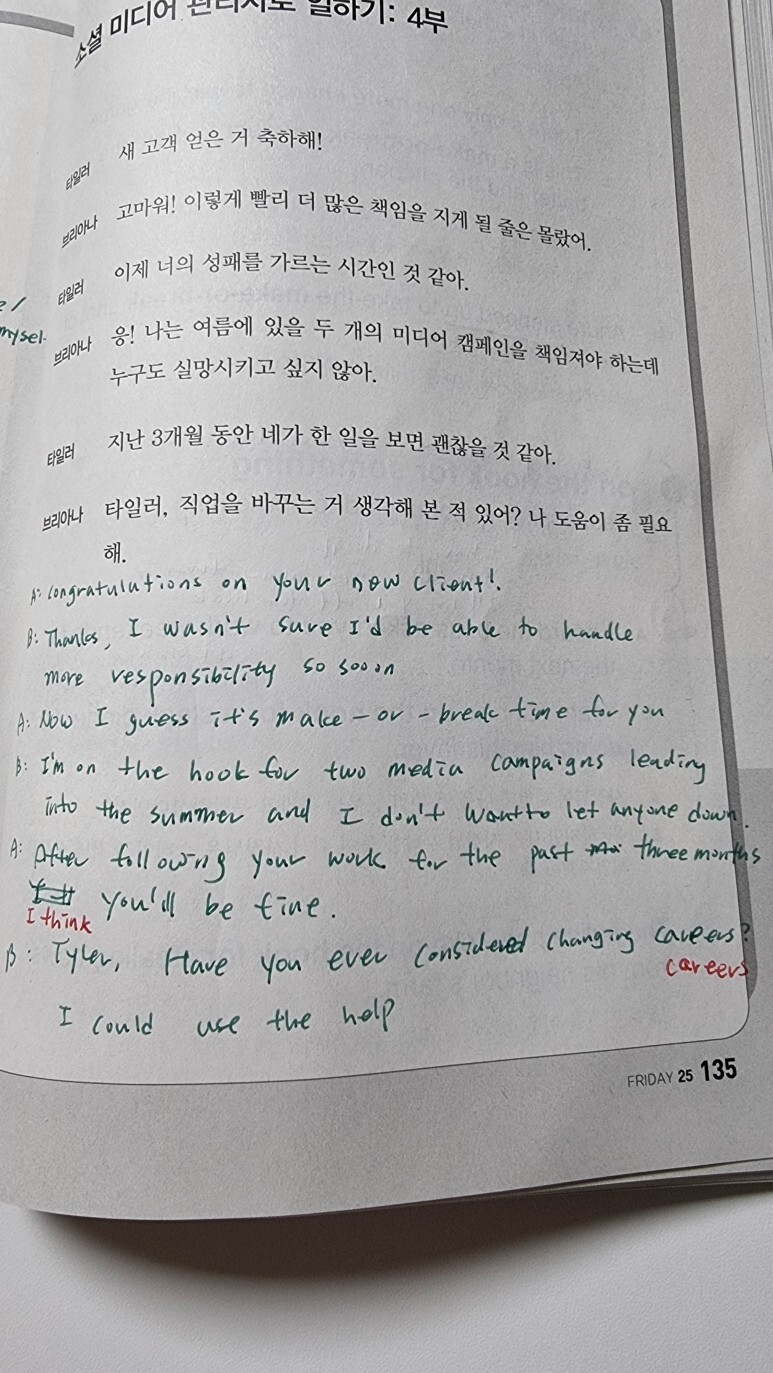 소셜 미디어 관리자로 일하기: 4부
타일러 새 고객 얻은 거 축하해!
브리아나 고마워! 이렇게 빨리 더 많은 책임을 지게 될 줄은 몰랐어.
타일러 이제 너의 성패를 가르는 시간인 것 같아.
mysel.
브리아나 응! 나는 여름에 있을 두 개의 미디어 캠페인을 책임져야 하는데
누구도 실망시키고 싶지 않아.
타일러 지난 3개월 동안 네가 한 일을 보면 괜찮을 것 같아.
브리아나 타일러, 직업을 바꾸는 거 생각해 본 적 있어? 나 도움이 좀 필요
해.
A: Congratulutions on your new client!
B: Thanks, I wasn't sure I'd be able to handle
more responsibility so sooon
A: Now I guess it's make-or-break time for you
B: I'm on the hook for two media campaigns leading
into the summer and I don't want to let anyone down.
A: After following your work for the past three months
I think you'll be fine.
B: Tyler, Have you ever considered changing careers?
careers
I could use the help
FRIDAY 25 135